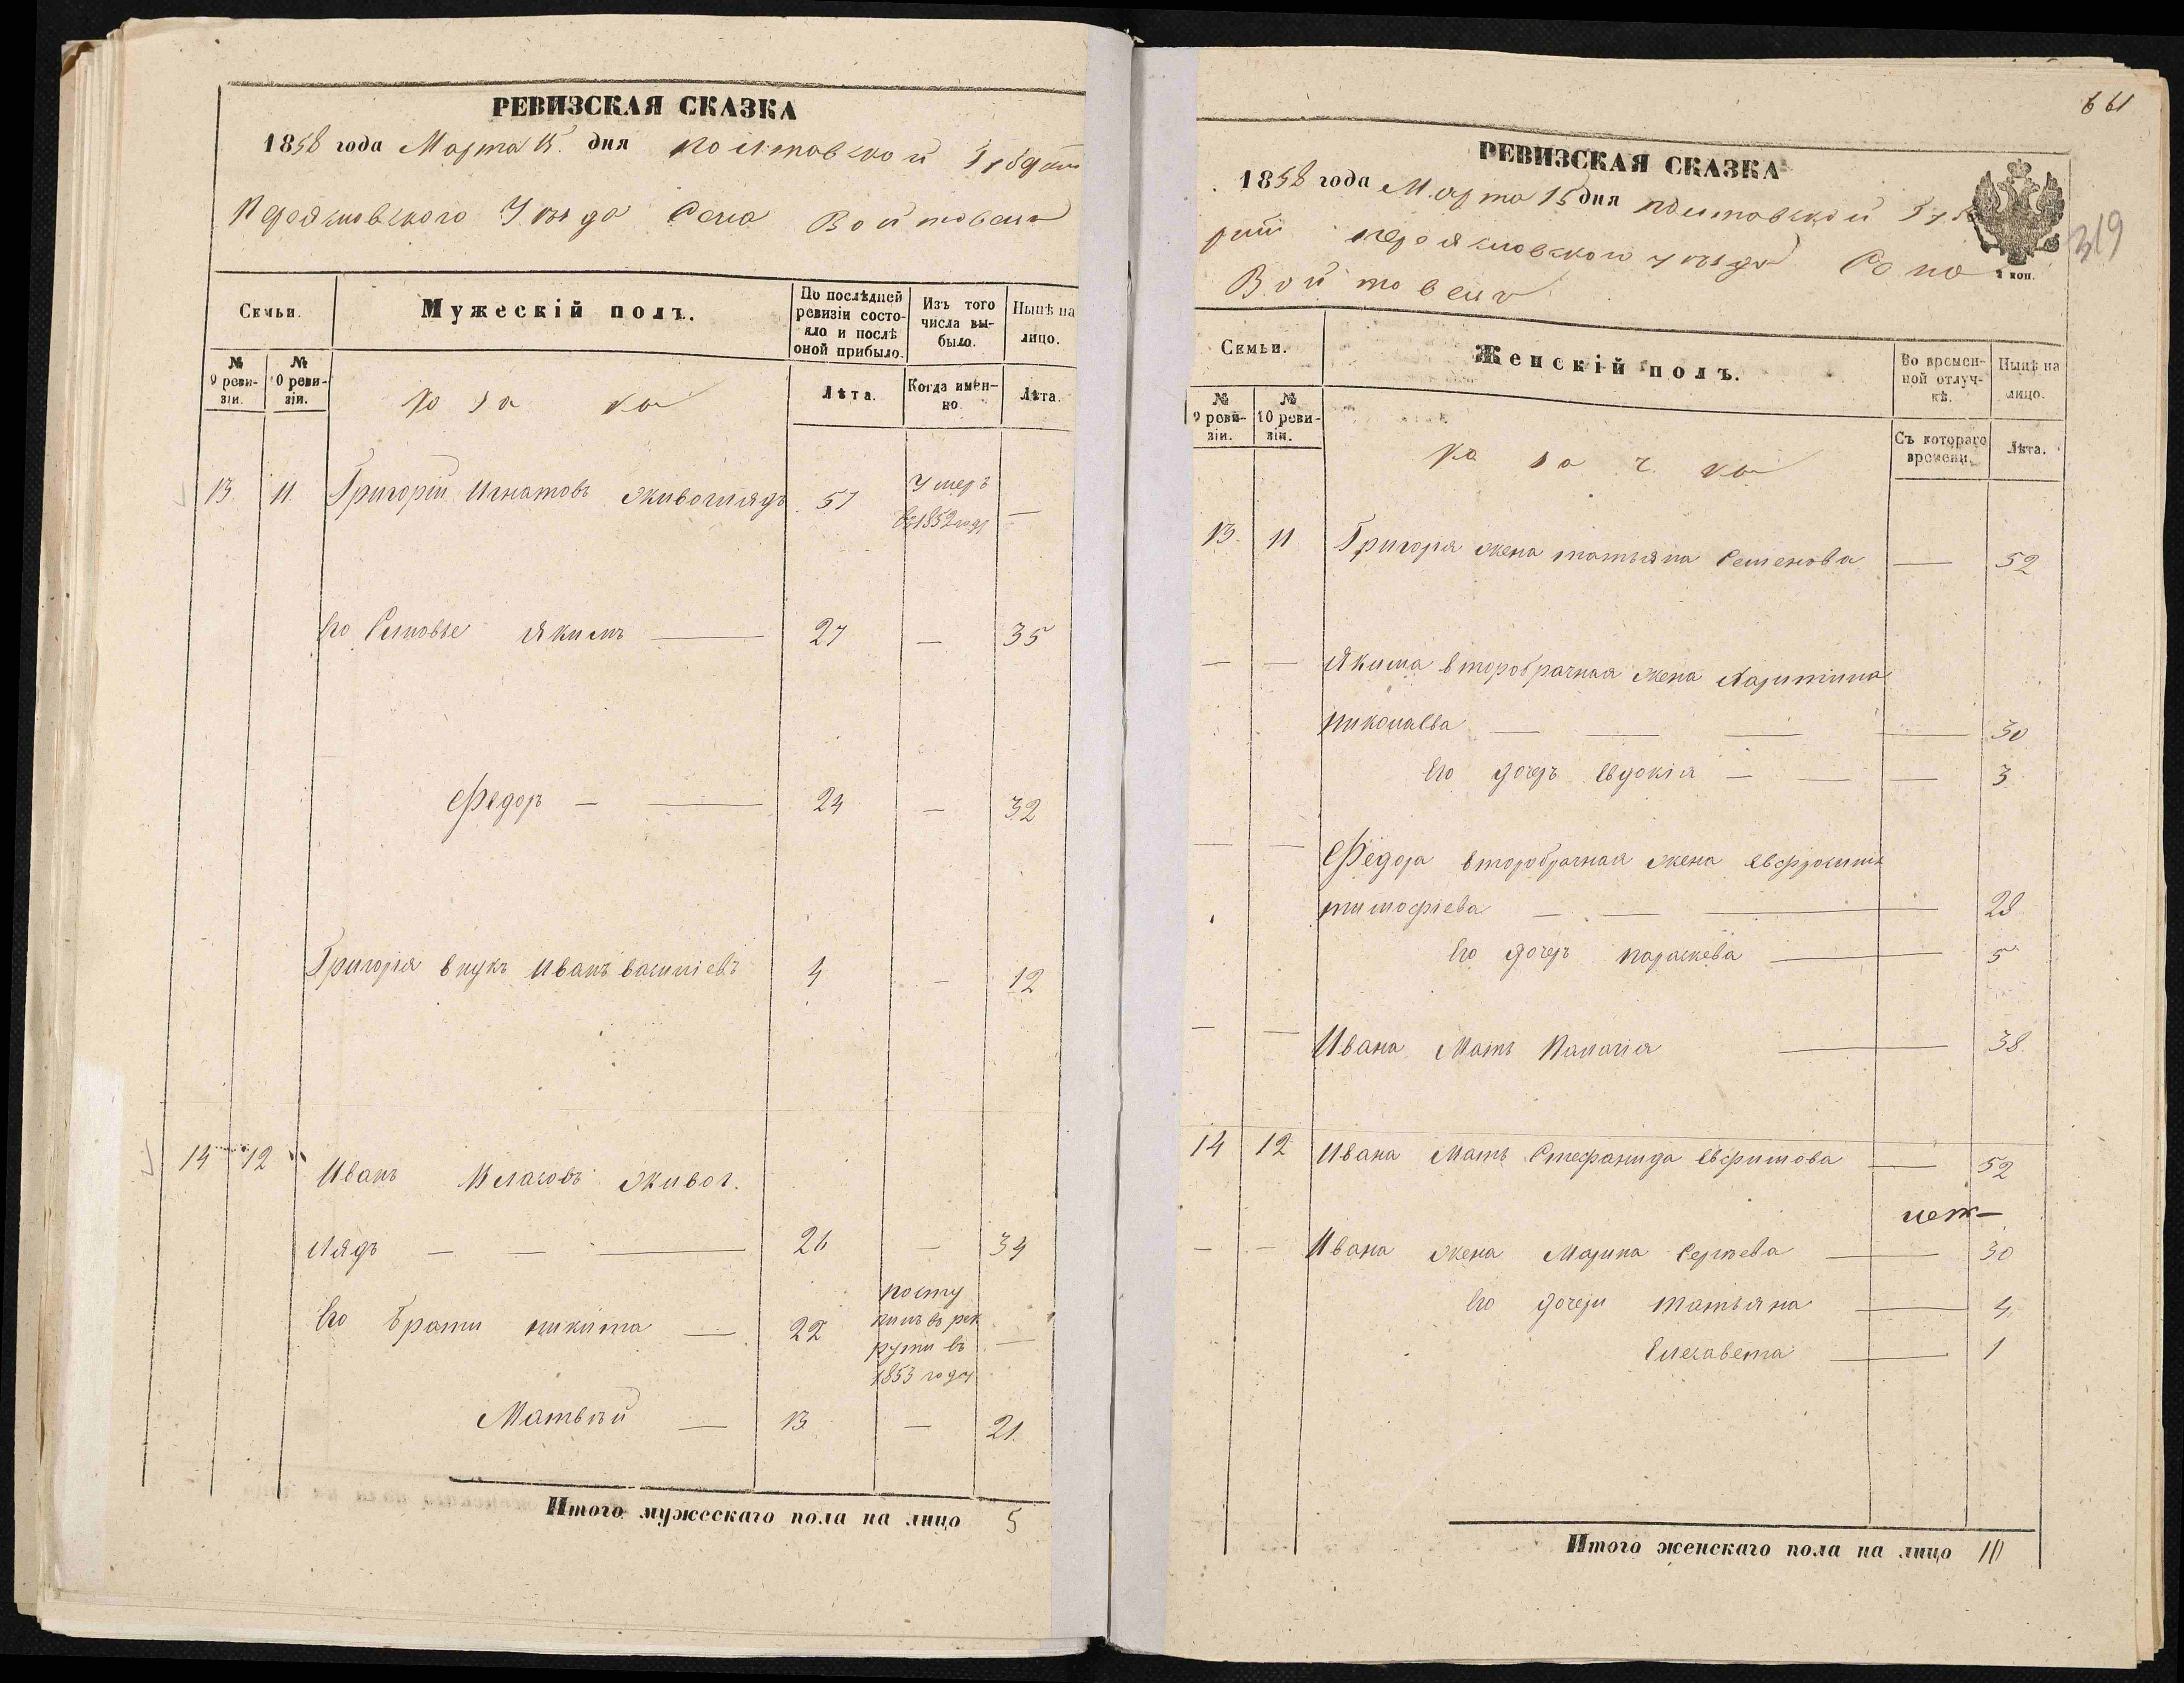 РЕВИЗСКАЯ СКАЗКА
1858 года Марта 15 дня Полтавской Губерніи
Переяславского Уѣзда Села Войтовецъ
Семьи.
Мужескій полъ.
По послѣдней ревизіи состояло и послѣ оной прибыло.
Изъ того числа выбыло.
Нынѣ на лицо.
№ 9 ревизіи.
№ 10 ревизіи.
Козаки
Лѣта.
Когда именно.
Лѣта.
13 11. Григорій Игнатовъ Живоглядъ 57 Умеръ въ 1852 году —
Его Сыновье Якимъ — 27 — 35
Федоръ — — 24 — 32
Григорія внукъ Иванъ Василіевъ 4 — 12
14 12 Иванъ Власовъ Живог.
лядъ — — — 26 — 34
Его Братьи Никита — 22 поступилъ въ рекруты въ 1853 году —
Матвѣй — 13 — 21.
Итого мужескаго пола на лицо 5
661
319
РЕВИЗСКАЯ СКАЗКА
1858 года Марта 15 дня Полтавской Губе
рніи Переяславского уѣзда Села
Войтовецъ
коп.
Семьи.
Женскій полъ.
Во временной отлучкѣ.
Нынѣ на лицо.
№ 9 ревизіи.
№ 10 ревизіи.
Козачки
Съ котораго времени.
Лѣта.
13. 11 Григорія жена Татьяна Семенова — 52
— — Якима второбрачная жена Харитина
Николаева — — — — 30
Его дочерь Евдокія — — — 3
— — Федора второбрачная жена Евфросинія
Тимофіева — — — 28
Его дочерь Параскева — 5
— — Ивана Мать Палагія — 38
14 12 Ивана Мать Стефанида Евфимова — 52
— — Ивана жена Марина Сергѣева — 30
Его дочери Татьяна — 4
Елисавета — 1
Итого женскаго пола на лицо 10